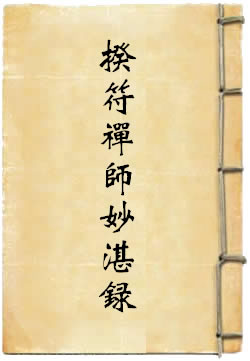 揆符禪師妙湛録